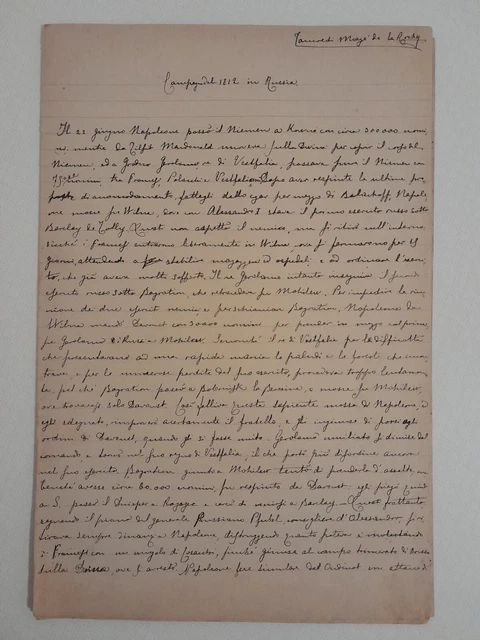 Campagna del 1812 in Russia
Il 22 giugno Napoleone passò il Niemen a Kowno con circa 300000 uomi
ni, mentre da Tilsit Macdonald moveva sulla Duina per
Niemen, ed a Grodno Gerolamo re di Vestfalia, passava pure il Niemen con
75000 uomini tra Francesi, Polacchi e Vestfaliani. Dopo aver respinte le ultime pro
poste di accomodamento, fattegli dallo czar per mezzo di Balachoff, Napole
one mosse su Wilna, dove con Alessandro I stava il primo esercito russo sotto
Barclay de Tolly. Quest non aspettò il nemico, ma si ritirò sull'interno
sicchè i Francesi entrarono liberamente in Wilna, ove si fermarono per 15
giorni, attendendo a stabilire magazzeni ed ospedali e ad ordinare l'eserci
to, che già aveva molto sofferto. Il re Gerolamo intanto inseguiva il secondo
esercito russo sotto Bagration, che retrocedeva su Mohilew. Per impedire la riu
nione dei due eserciti nemici e per schiacciare Bagration, Napoleone da
Wilna mandò Davout con 50000 uomini per prender in mezzo col prin
pe Gerolamo i Russi a Mohilew. Sennonchè il re di Vestfalia per le difficoltà
che presentavano ad una rapida marcia le paludi e le foreste che incon
trava, e per le numerose perdite del suo esercito, procedeva troppo lentamen
te, sì che Bagration passò a Bobruisk la Beresina, e mosse su Mohilew,
ove trovavasi solo Davout. Così falliva questa sapiente mossa di Napoleone, ed
egli sdegnato, rimproverò acerbamente il fratello, e gli ingiunse di porsi agli
ordini di Davout, quando gli si fosse unito. Gerolamo umiliato si dimise dal
comando e tornò nel suo regno di Vestfalia, il che portò più disordine ancora
nel suo esercito. Bagration giunto a Mohilew tentò di prenderla d'assalto, ma
benchè avesse circa 60.000 uomini, fu respinto da Davout: egli piegò quindi
a S. passò il Dnieper a e corse di unirsi a Barclay. Quest frattanto,
seguendo il piano del generale Prussiano Pfuhl, consigliere d'Alessandro, si ri
tirava sempre dinanzi a Napoleone, distruggendo quanto poteva e molestando
i Francesi con un nugolo di Cosacchi, finchè giunse al campo trincerato di Drissa
sulla Drissa, ove s'arrestò. Napoleone fece simulare dal Oudinot un attacco di